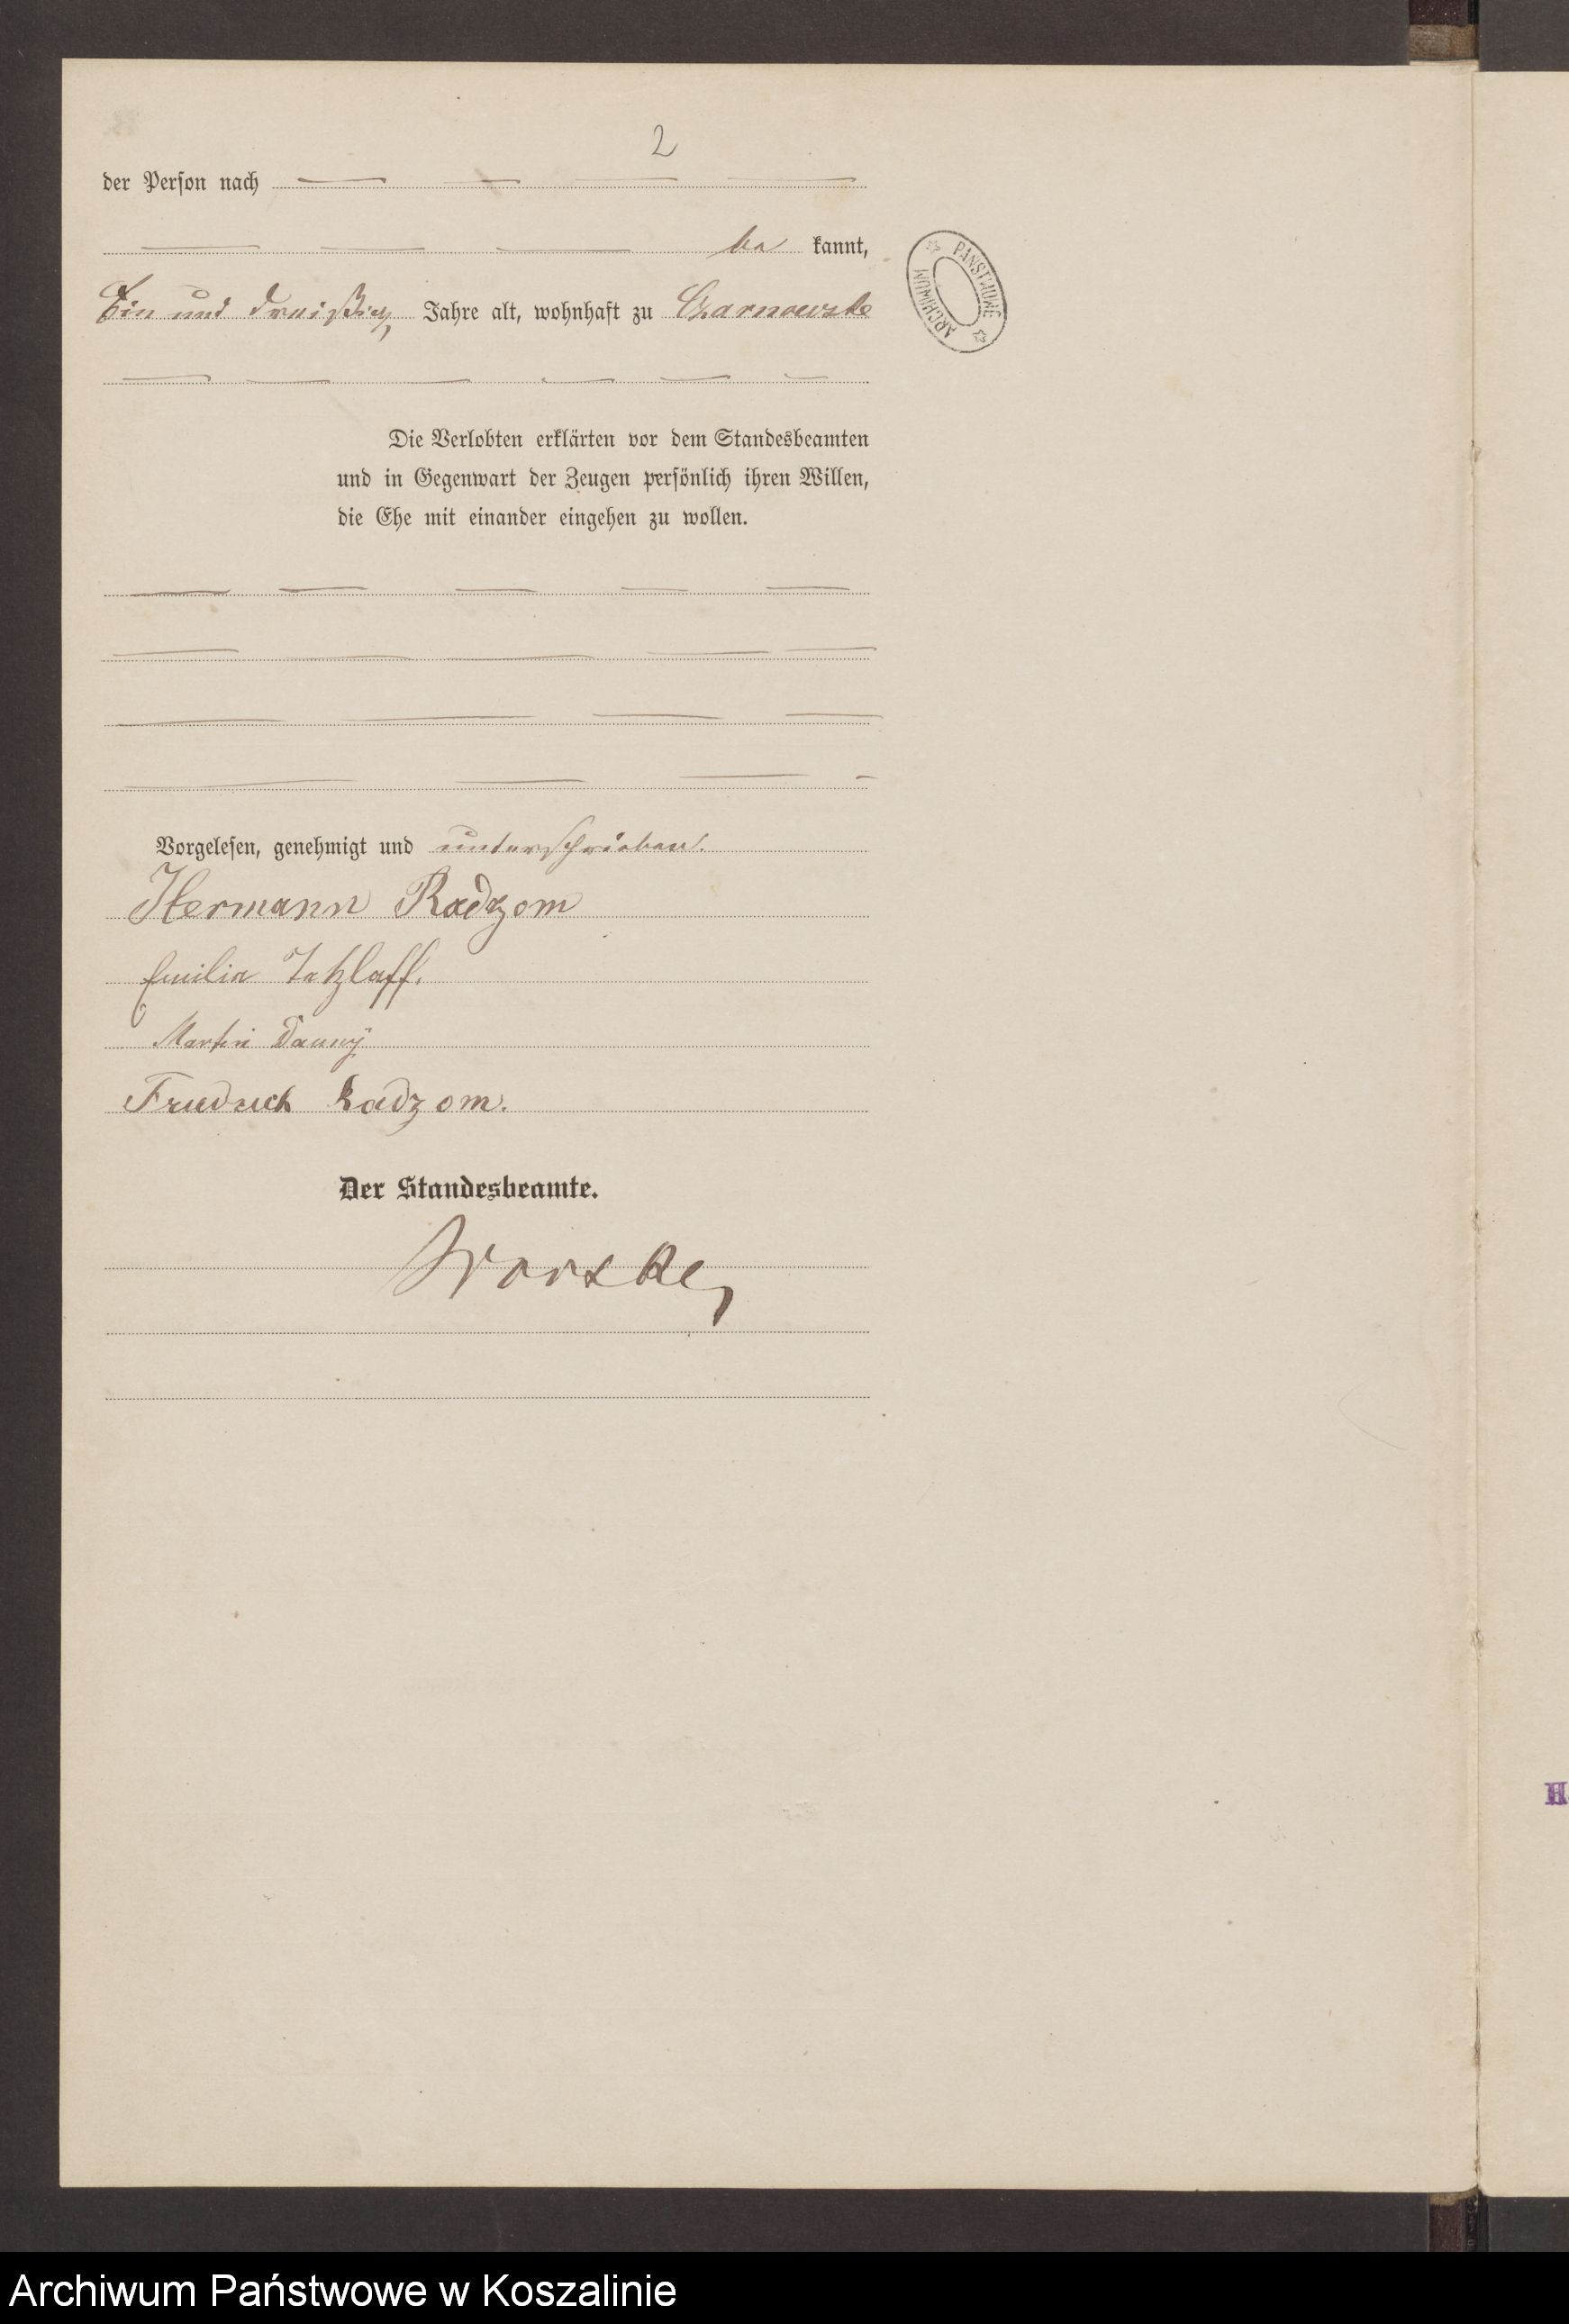 2
der Person nach
be kannt,
Ein und dreißig Jahre alt, wohnhaft zu Czarnowske
Die Verlobten erklärten vor dem Standesbeamten
und in Gegenwart der Zeugen persönlich ihren Willen,
die Ehe mit einander eingehen zu wollen.
Vorgelesen, genehmigt und unterschrieben.
Hermann Radzom
Emilie Tetzlaff.
Martin
Friedrich Radzom.
Der Standesbeamte.
ARCHIWUM PAŃSTWOWE
Archiwum Państwowe w Koszalinie